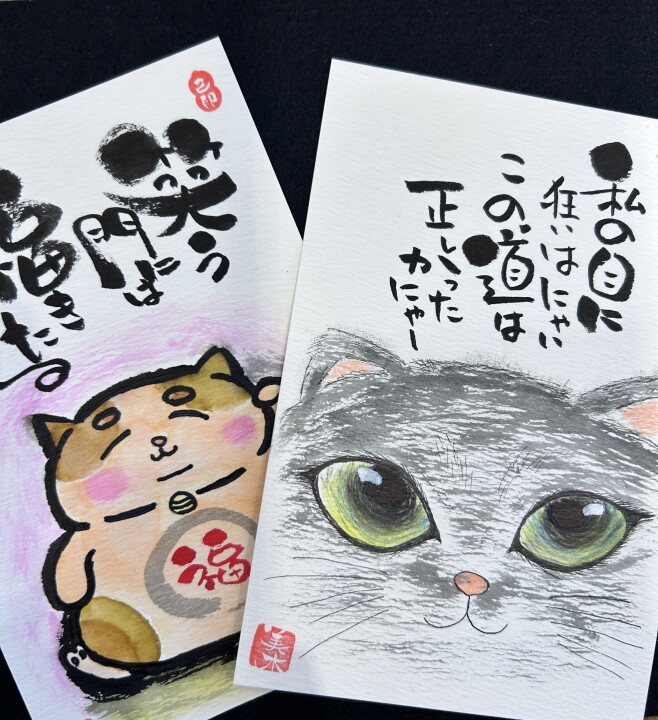 笑う
門には
福きたる
福
私の目に
狂いはにゃい
この道は
正しくった
かにゃー
美木